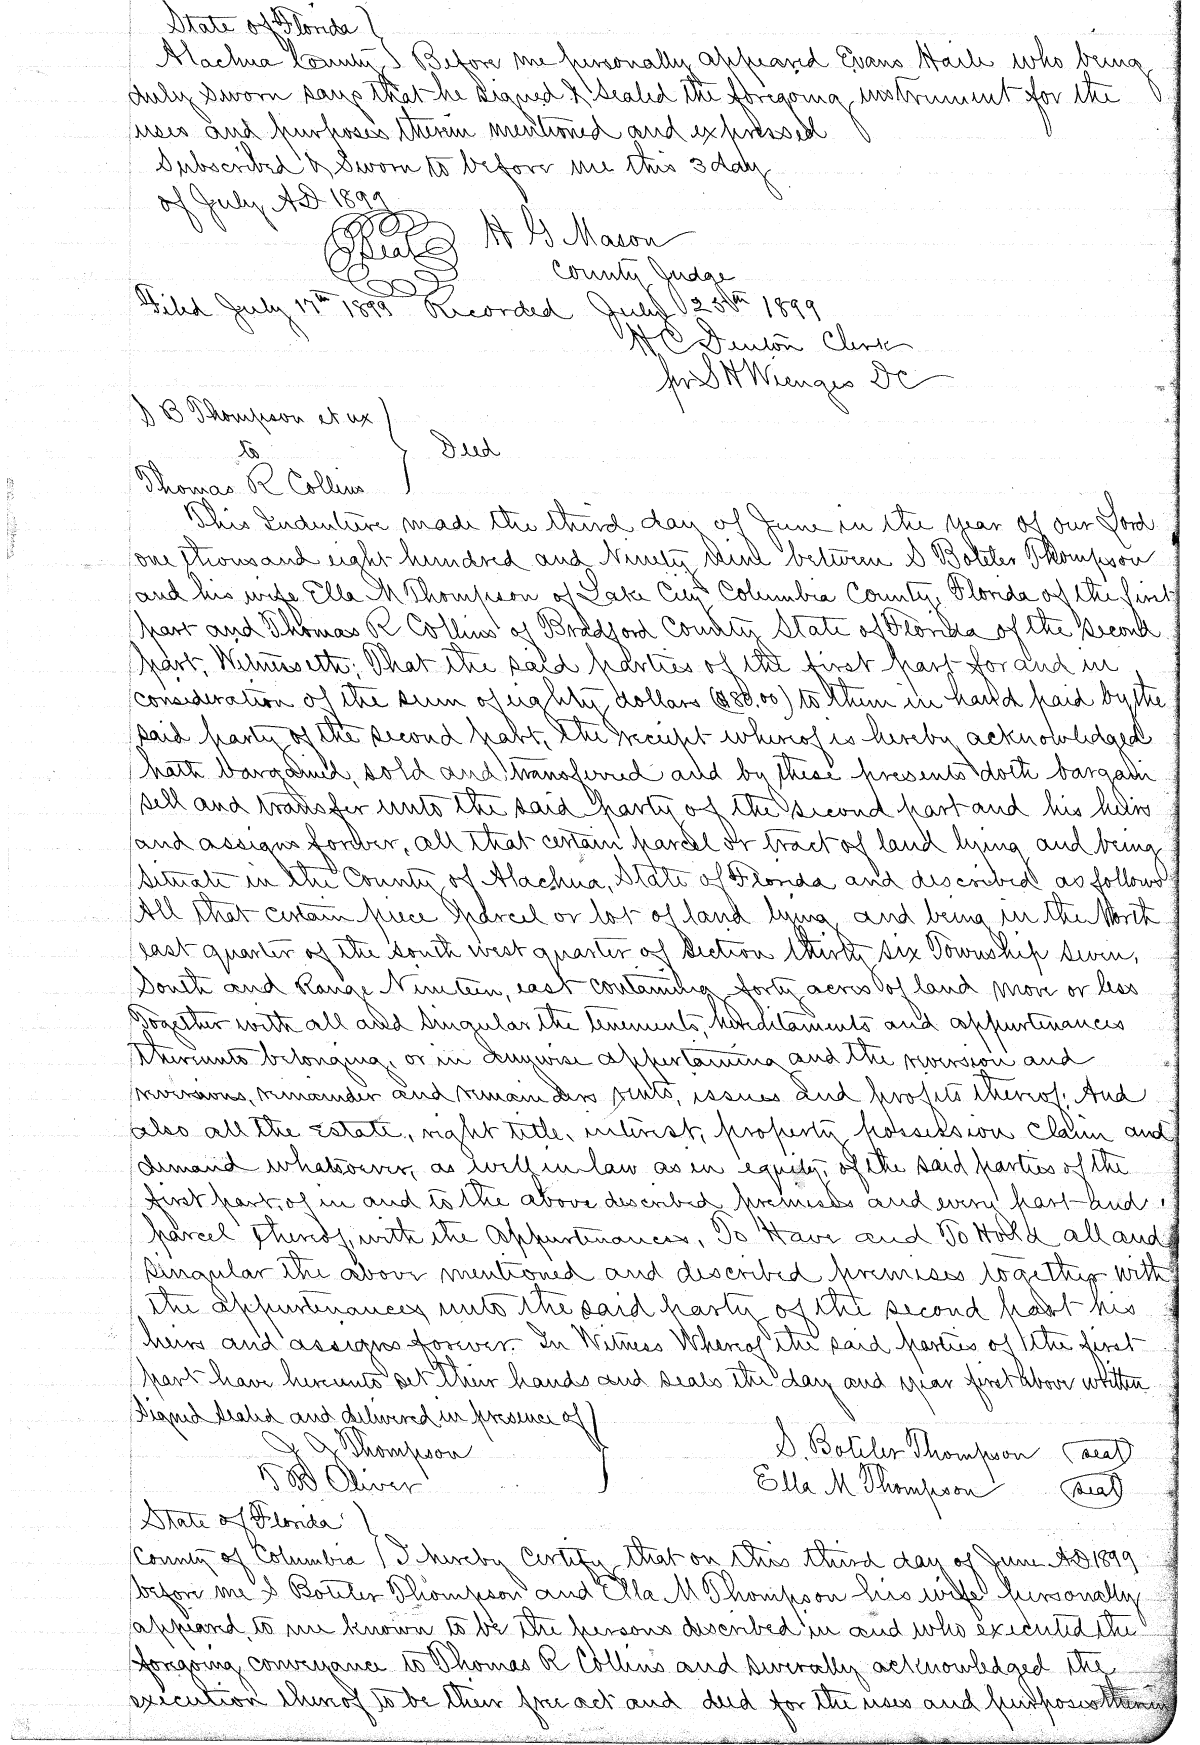 State of Florida
Alachua County Before me personally appeared Evans Haile who being
duly sworn says that he signed & sealed the foregoing instrument for the
uses and purposes therein mentioned and expressed
Subscribed & Sworn to before me this 3 day
of July AD 1899
Seal H G Mason
County Judge
Filed July 17th 1899 Recorded July 25th 1899
H C Denton Clerk
per S H Wienges DC
S B Thompson et ux
to Deed
Thomas R Collins
This Indenture made the third day of June in the year of our Lord
one thousand eight hundred and Ninety Nine between S Boteler Thompson
and his wife Ella M Thompson of Lake City Columbia County, Florida of the first
part and Thomas R Collins of Bradford County State of Florida of the second
part, Witnesseth; That the said parties of the first part for and in
consideration of the sum of eighty dollars ($80.00) to them in hand paid by the
said party of the second part, the receipt whereof is hereby acknowledged
hath bargained, sold and transferred and by these presents doth bargain
sell and transfer unto the said party of the second part and his heirs
and assigns forever, all that certain parcel or tract of land lying and being
situate in the County of Alachua, State of Florida and described as follows
All that certain piece parcel or lot of land lying and being in the North
east quarter of the south west quarter of Section thirty six Township seven,
South and Range Nineteen, east containing forty acres of land more or less
Together with all and singular the tenements, hereditaments and appurtenances
thereunto belonging, or in anywise appertaining and the reversion and
reversions, remainder and remainders rents, issues and profits thereof; And
also all the estate, right title, interest, property possession claim and
demand whatsoever, as well in law as in equity, of the said parties of the
first part, of in and to the above described premises and every part and
parcel thereof, with the appurtenances, To Have and To Hold all and
singular the above mentioned and described premises together with
the appurtenances unto the said party of the second part his
heirs and assigns forever. In Witness Whereof the said parties of the first
part have hereunto set their hands and seals the day and year first above written
Signed sealed and delivered in presence of
J G Thompson S. Boteler Thompson (seal)
T B Oliver Ella M Thompson (seal)
State of Florida
County of Columbia I hereby certify that on this third day of June AD 1899
before me S Boteler Thompson and Ella M Thompson his wife personally
appeard to me known to be the persons described in and who executed the
forgoing conveyance to Thomas R Collins and severally acknowledged the
execution thereof to be their free act and deed for the uses and purposes therein